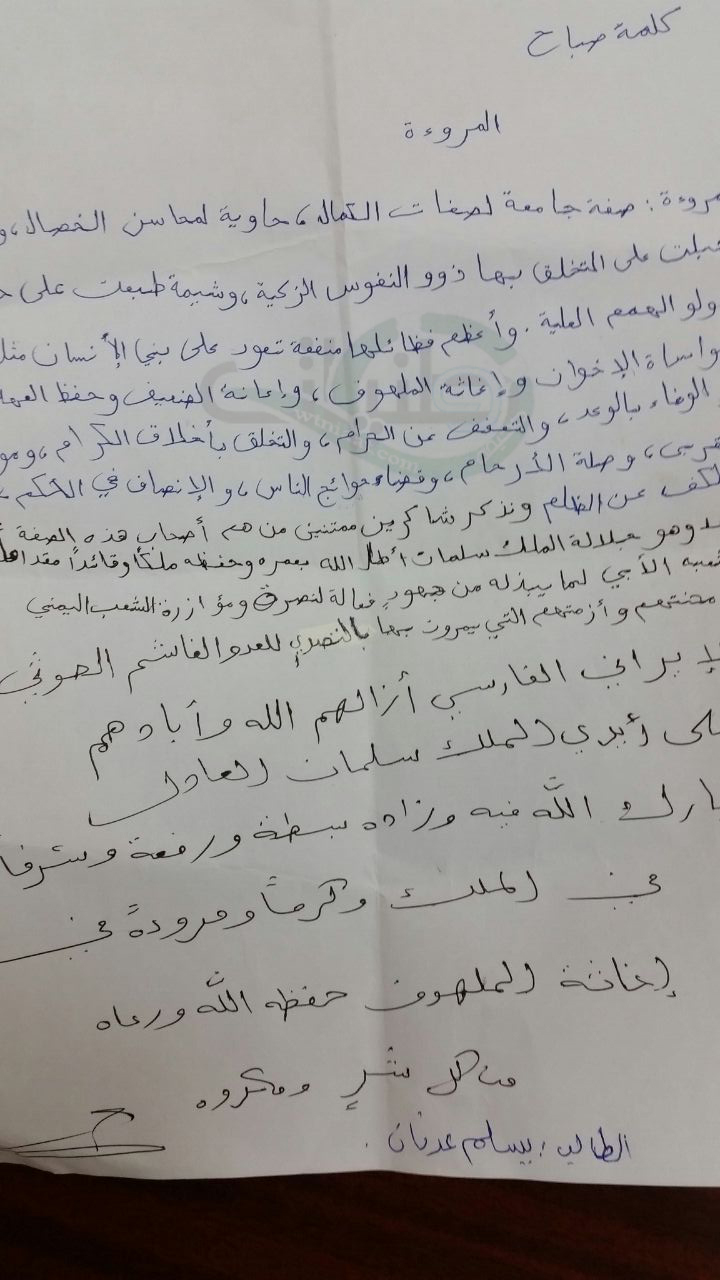 كلمة صباح
المروءة
مروءة : صفة جامعة لصفات الكمال، حاوية لمحاسن الخصال، و
جبلت على المتخلق بها ذوو النفوس الزكية، وشيمة طبعت على
ولو الهمم العلية. وأعظم فظائلها منفعة تعود على بني الأنسان مثل
واساة الإخوان وإغاثة الملهوف، وإعانة الضعيف وحفظ العهد
الوفاء بالوعد، والتعفف عن الحرام، والتخلق بأخلاق الكرام،
قربى، وصلة الأرحام، وقضاء حوائج الناس، والإنصاف في الحكم،
لكف عن الظلم ونذكر شاكرين ممتنين من هم أصحاب هذه الصفة
وهو جلالة الملك سلمان أطال الله بعمره وحفظه ملكاً وقائداً مقداما
شعبه الأبي لما يبذله من جهود فعالة لنصرة ومؤازرة الشعب اليمني
محنتهم وأزمتهم التي يمرون بها بالتصدي للعدو الغاشم الحوثي
لإيراني الفارسي أزالهم الله وأبادهم
لى أيدي الملك سلمان العادل
بارك اللّه فيه وزاده بسطة ورفعة وشرفاً
في الملك وكرماً ومروءةً في
إغاثة الملهوف حفظه اللّه ورعاه
من كل شرٍ ومكروه
الطالب : بسلم عدنان .